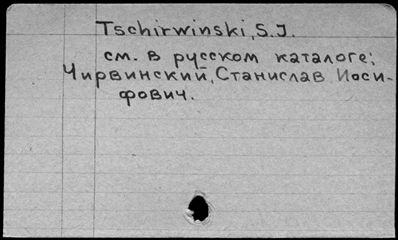 Tschirwinski, S.J.
см. в русском каталоге;
Чирвинский, Станислав Иоси-
фович.